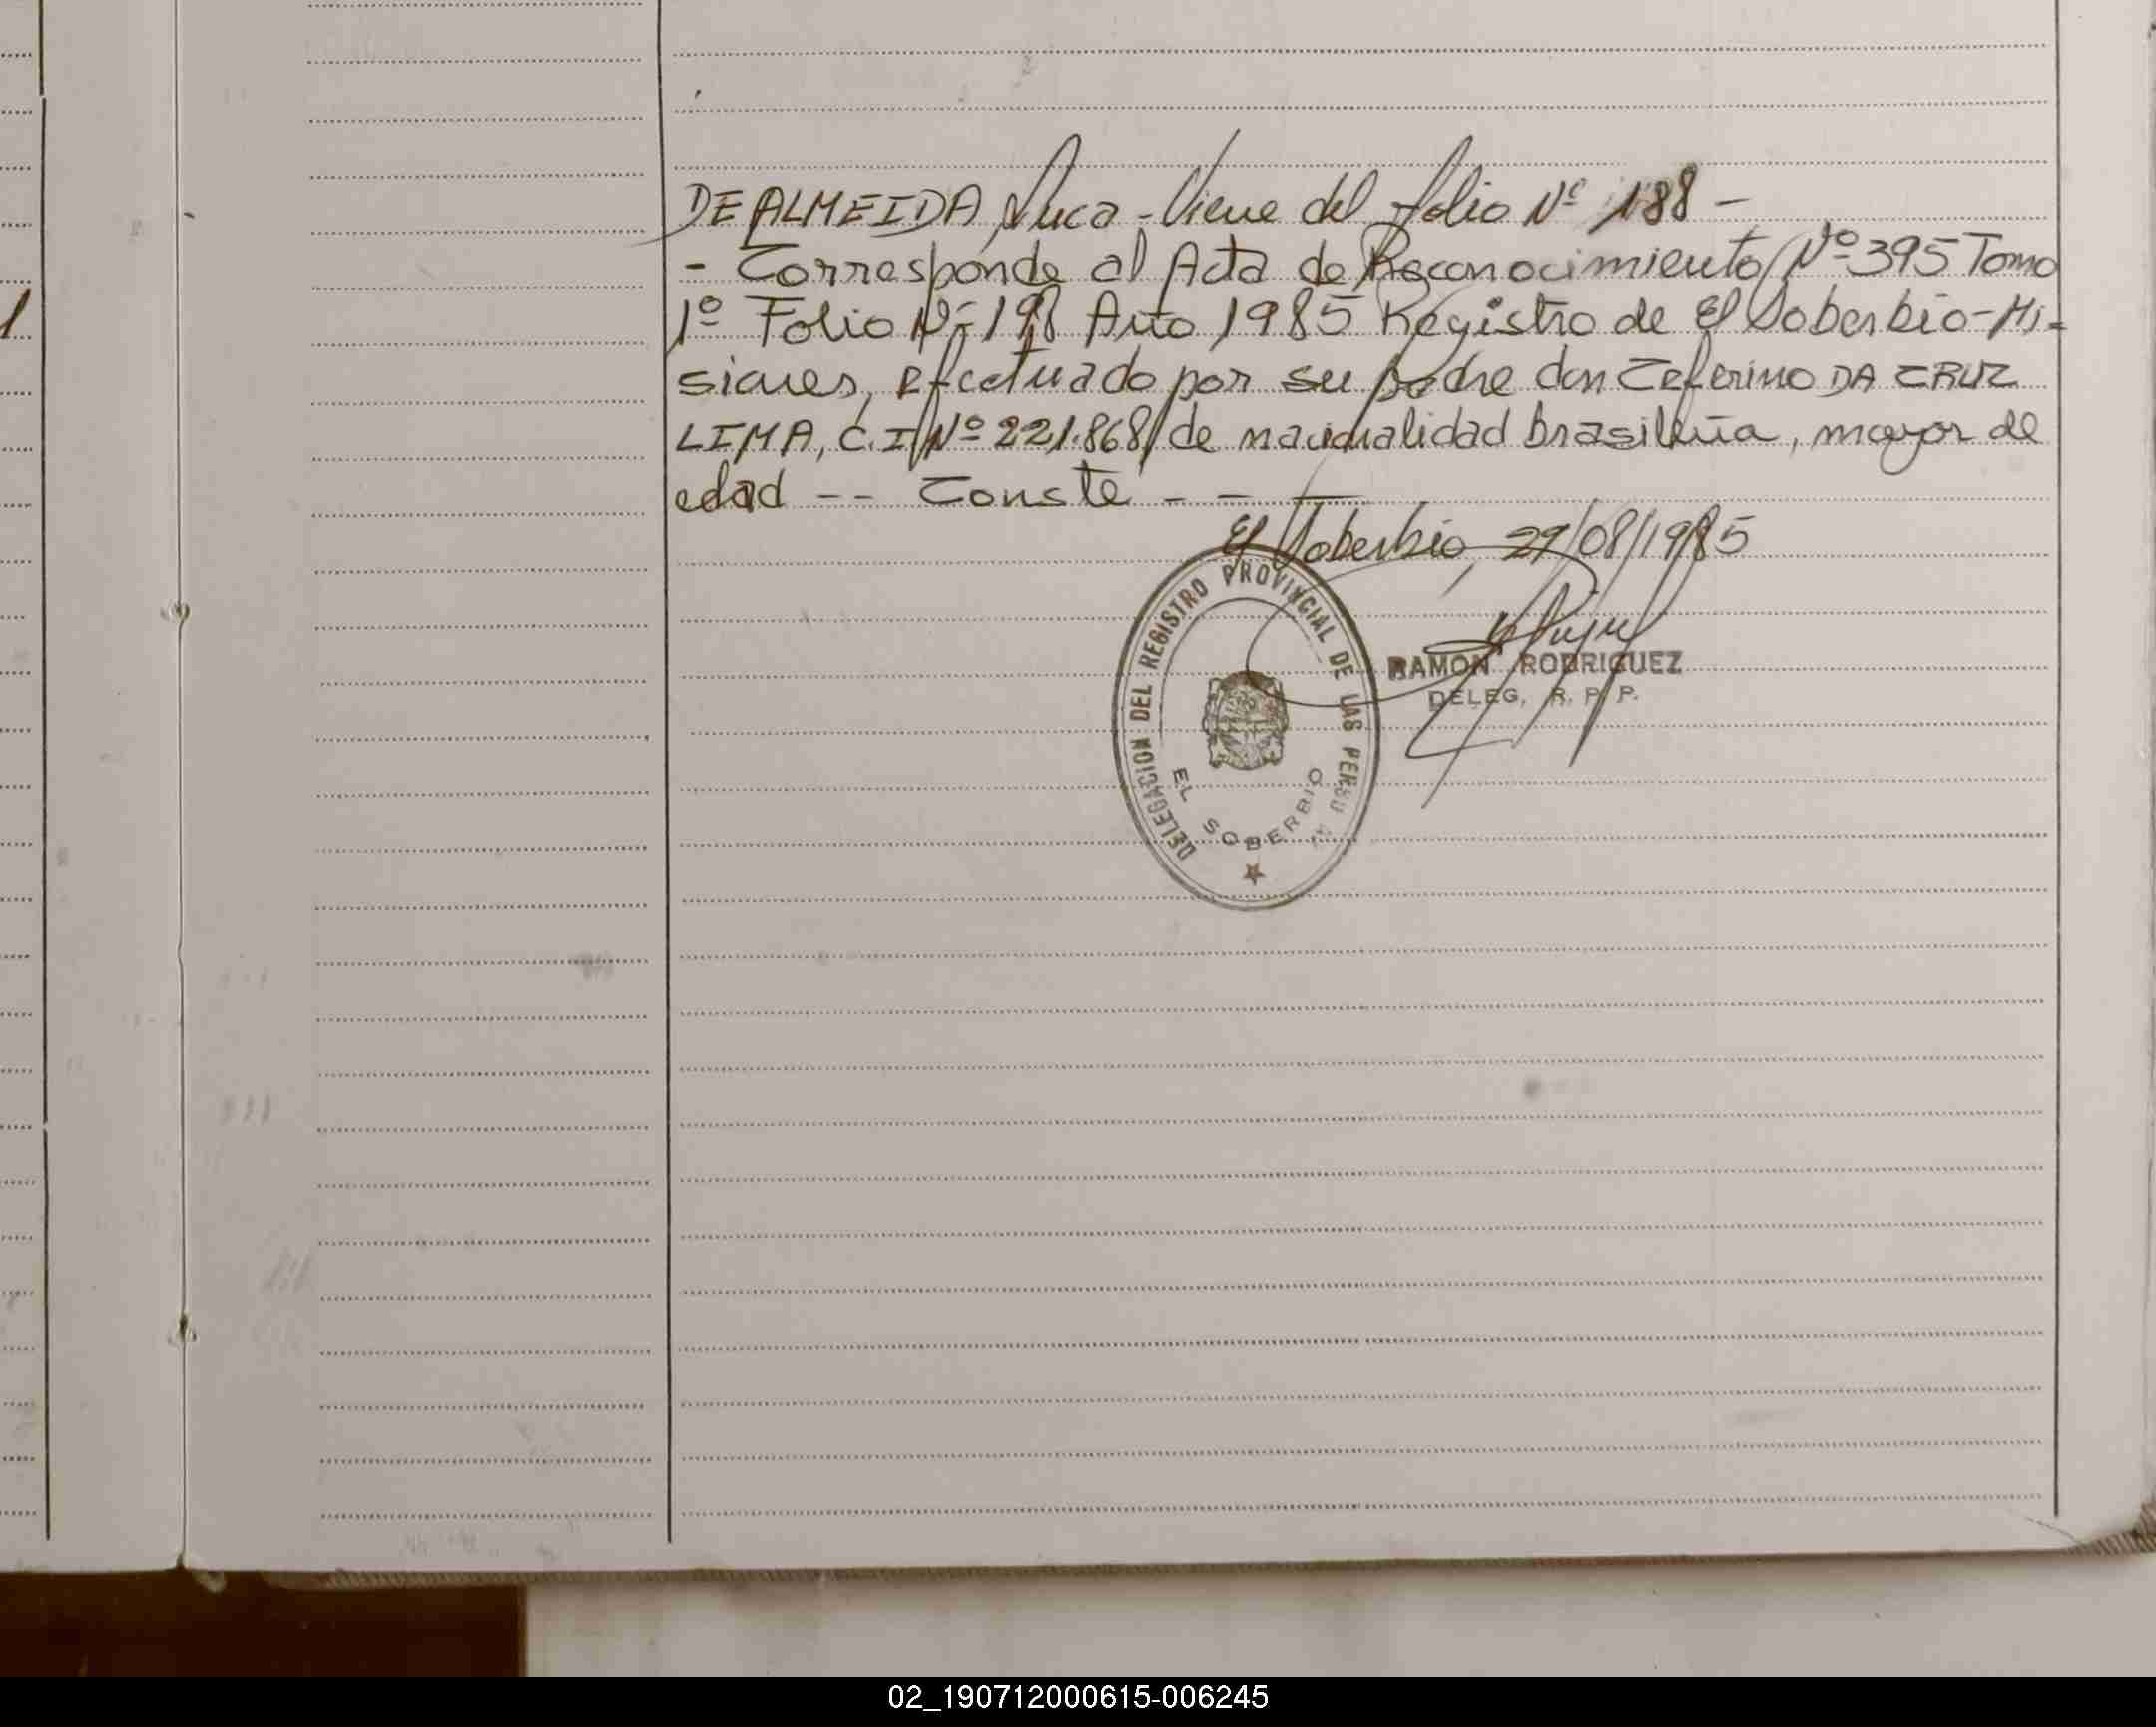 DE ALMEIDA, Luca - Viene del folio Nº 188 -
- Corresponde al Acta de Reconocimiento Nº 395 Tomo
1º Folio Nº 198 Año 1985 Registro de El Soberbio - Mi-
siones, efectuado por su padre don Ceferino DA CRUZ
LIMA, C.I Nº 221.868, de nacionalidad brasileña, mayor de
edad -- Conste - - -
El Soberbio, 29/08/1985
DELEGACION DEL REGISTRO PROVINCIAL DE LAS PERSO
EL SOBERBIO
RAMON RODRIGUEZ
DELEG. R. P. P.
02_190712000615-006245